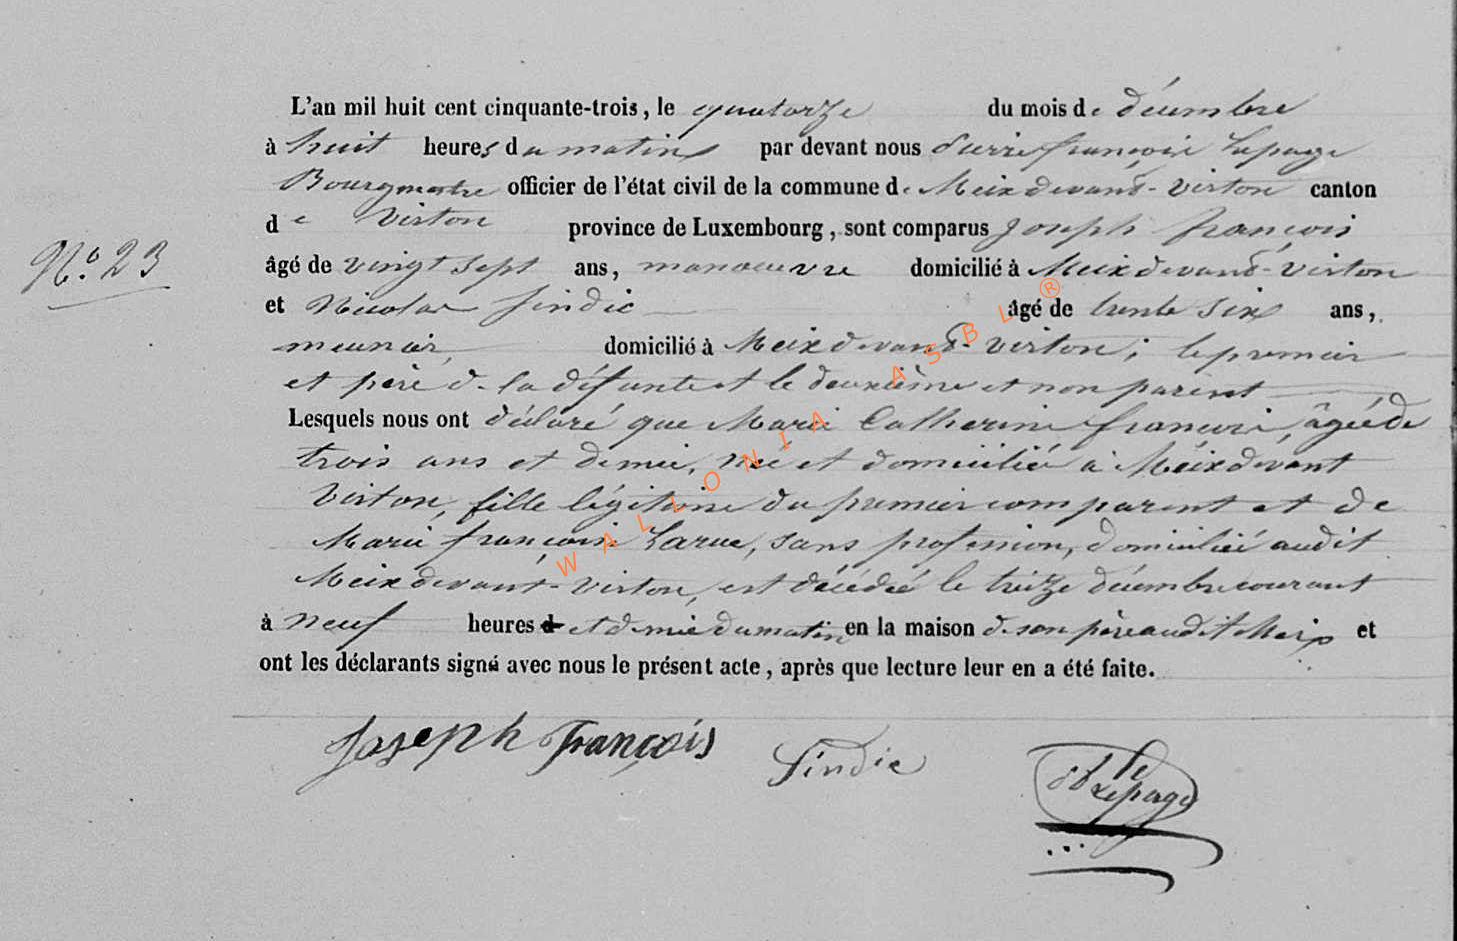 L'an mil huit cent cinquante-trois, le quatorze du mois de décembre
à huit heures du matin par devant nous Pierre françois Lepage
Bourgmestre officier de l'état civil de la commune de Meix devant-virton canton
de Virton province de Luxembourg, sont comparus Joseph françois
N.° 23
âgé de vingt sept ans, manoeuvre domicilié à Meix devant-virton
et Nicolas Sindic âgé de trente six ans,
meunier, domicilié à Meix devant-virton; le premier
et père de la défunte et le deuxième et non parent
Lesquels nous ont déclaré que Marie Catherine françois, âgée de
trois ans et demie, née et domiciliée à Meix devant
Virton, fille légitime du premier comparent et de
Marie françoise Larue, sans profession, domiciliée audit
Meix devant-virton, est décédée le treize décembre courant
à neuf heures et demie du matin en la maison de son père audit Meix et
ont les déclarants signé avec nous le présent acte, après que lecture leur en a été faite.
Joseph François Sindic Lepage
WALLONIA ASBL ®